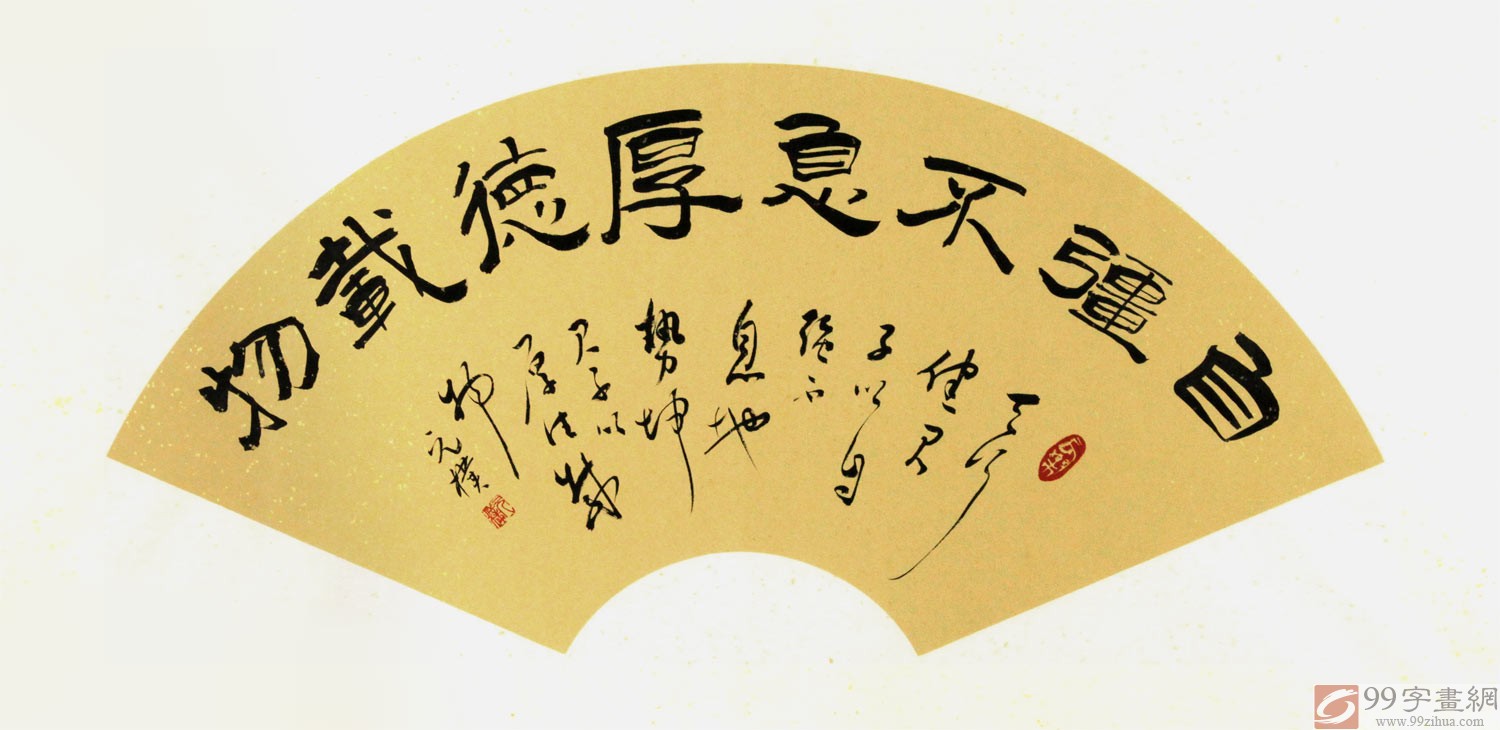 自彊不息厚德載物
天行
健君
子以自
强不
息地
勢坤
君子以
厚德載
物
元樸
99字畫網
www.99zihua.com